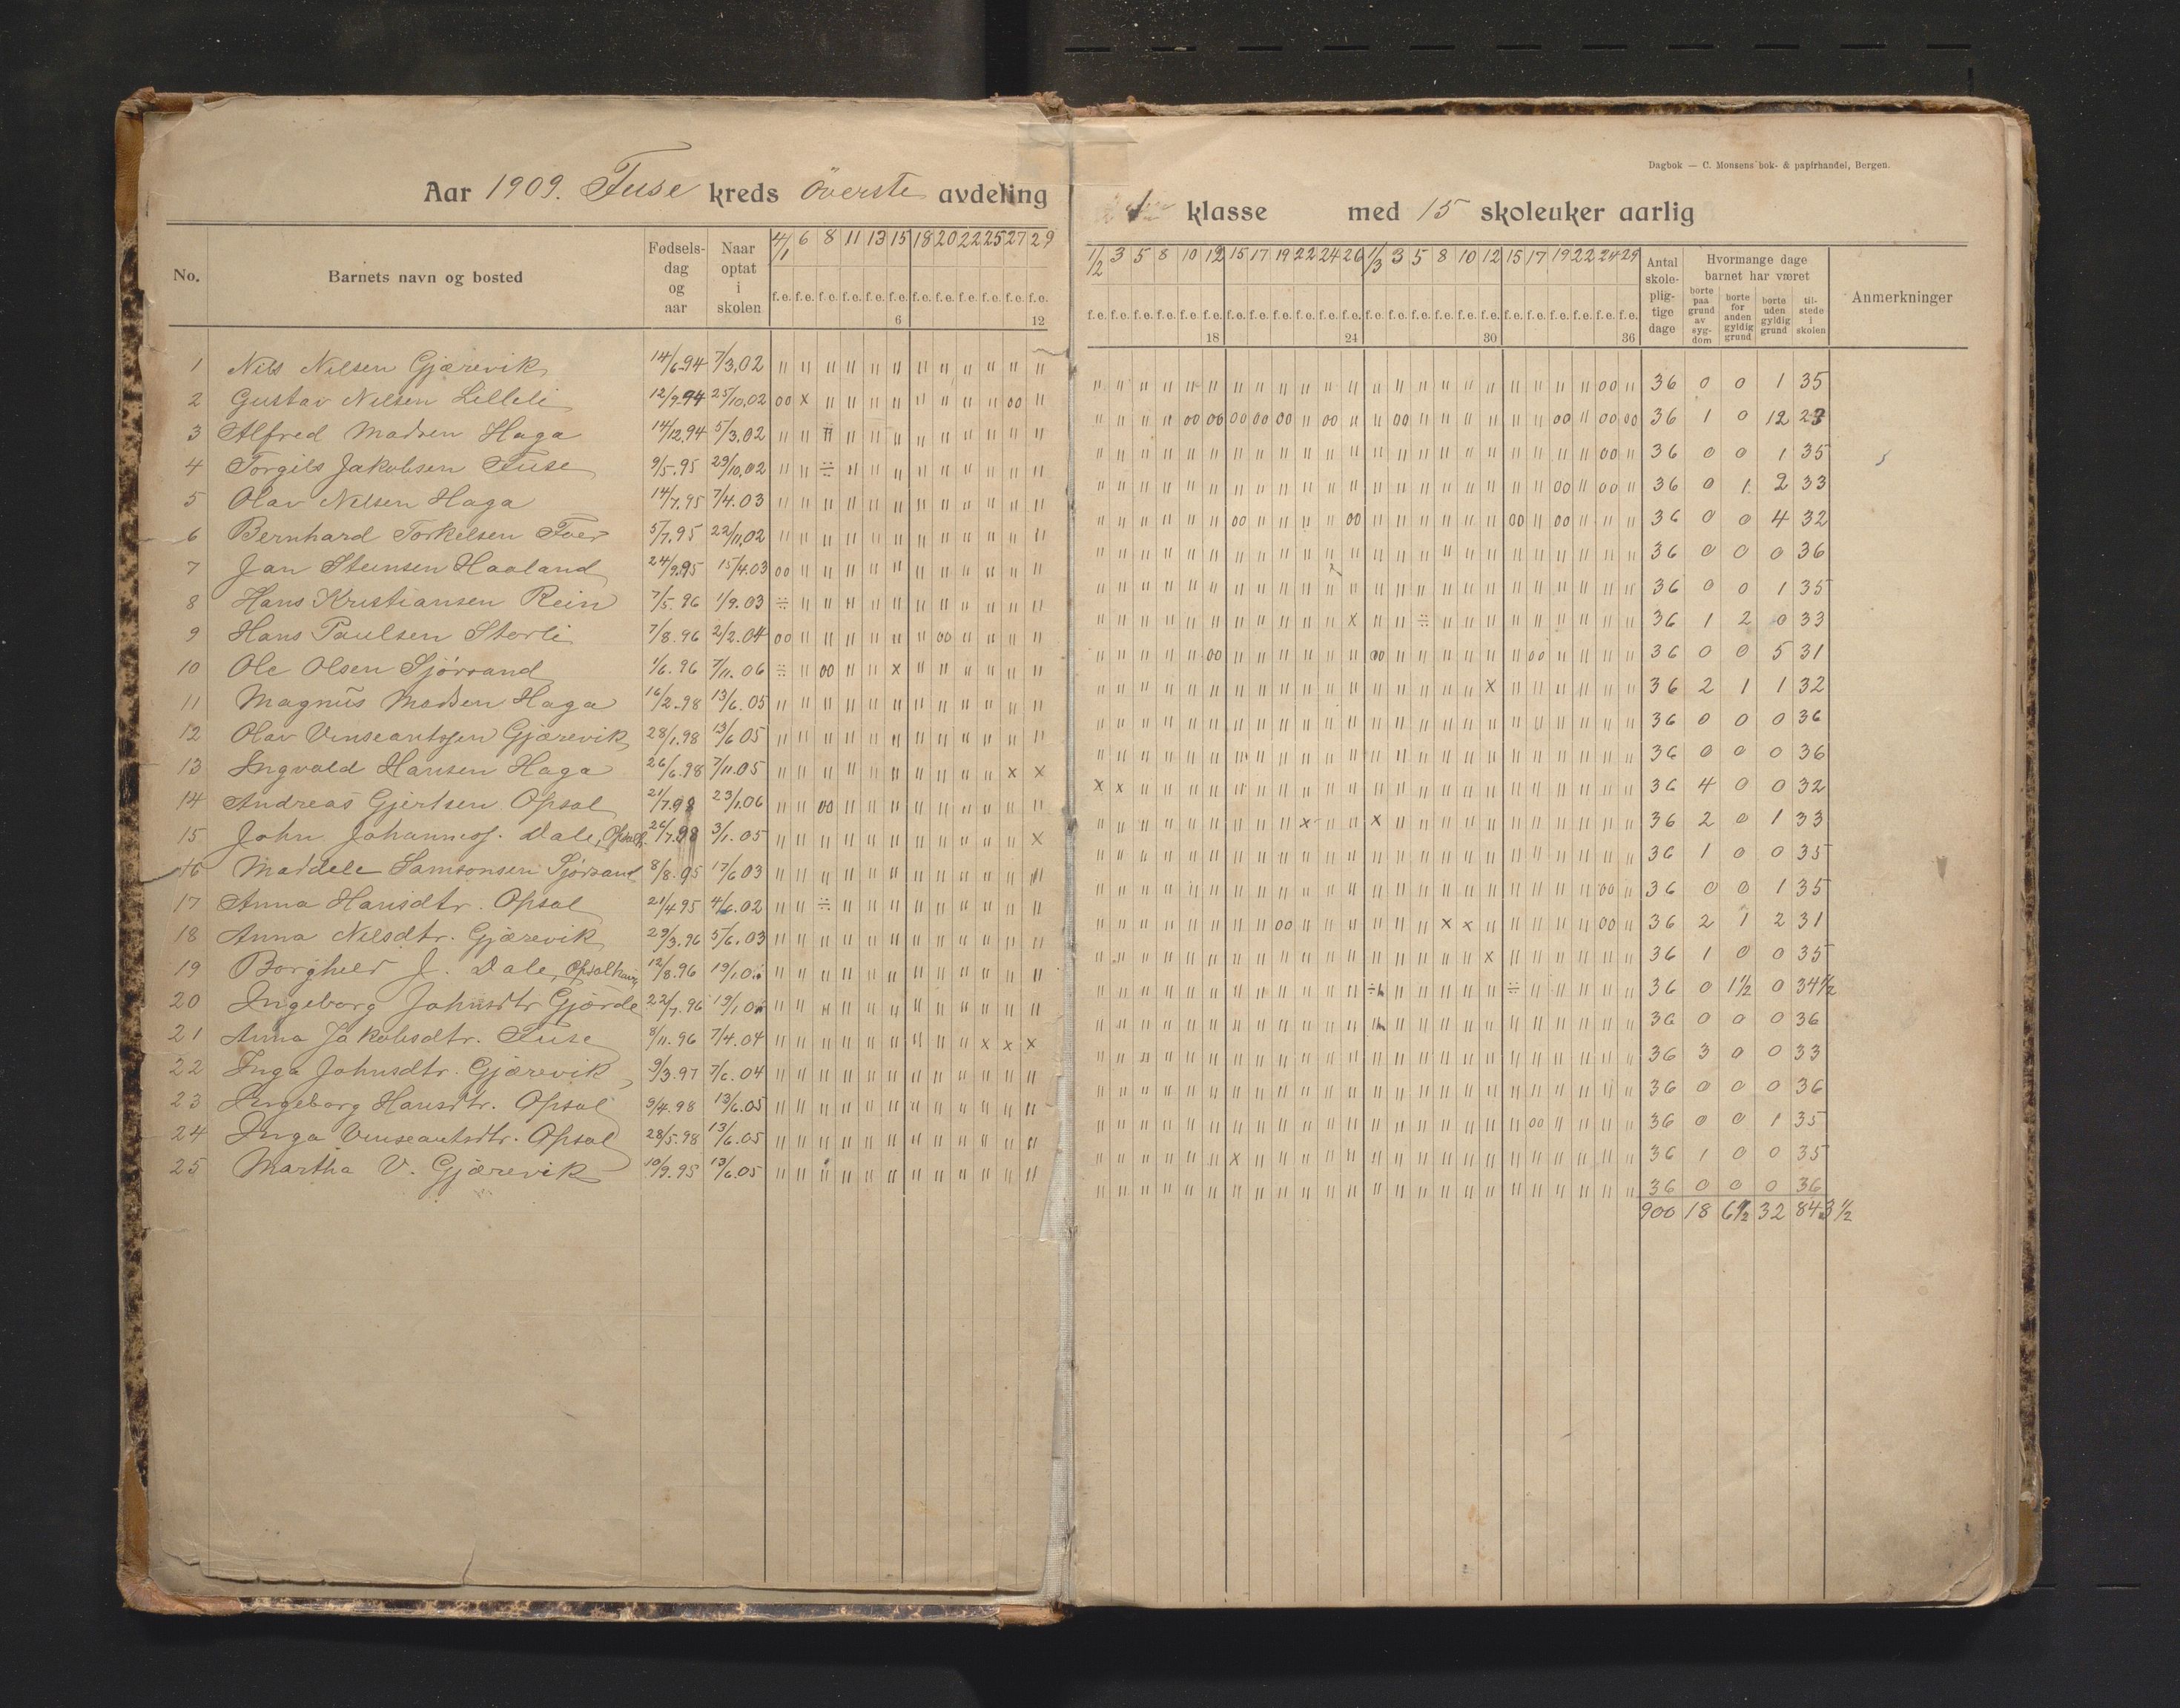 Dagbok — C. Monsens bok- & papirhandel, Bergen.
Aar 1909. Fuse kreds överste avdeling
klasse med 15 skoleuker aarlig
No. Barnets navn og bosted Fødsels-dag og aar Naar optat i skolen 4/1 6 8 11 13 15 18 20 22 25 27 29
1/2 3 5 8 10 12 15 17 19 22 24 26 1/3 3 5 8 10 12 15 17 19 22 24 29 Antal skole-plig-tige dage Hvormange dage barnet har været Anmerkninger
borte paa grund av syg-dom borte for anden gyldig grund borte uden gyldig grund til-stede i skolen
f.e. f.e. f.e. f.e. f.e. f.e. f.e. f.e. f.e. f.e. f.e. f.e.
6 12
f.e. f.e. f.e. f.e. f.e. f.e. f.e. f.e. f.e. f.e. f.e. f.e. f.e. f.e. f.e. f.e. f.e. f.e. f.e. f.e. f.e. f.e. f.e. f.e.
18 24 30 36
1 Nils Nilsen Gjærevik 14/6.94 7/3.02 36 0 0 1 35
2 Gustav Nilsen Lilleli 12/9.94 25/10.02 36 1 0 12 23
3 Alfred Madsen Haga 14/12.94 5/3.02 36 0 0 1 35
4 Torgils Jakobsen Fuse 9/5.95 29/10.02 36 0 1 2 33
5 Olav Nilsen Haga 14/7.95 7/4.03 36 0 0 4 32
6 Bernhard Torkelsen 5/7.95 22/11.02 36 0 0 0 36
7 Jan Steinsen Haaland 24/9.95 15/4.03 36 0 0 1 35
8 Hans Kristiansen Rein 7/5.96 1/9.03 36 1 2 0 33
9 Hans Paulsen Storli 7/8.96 2/2.04 36 0 0 5 31
10 Ole Olsen Sjørsand 1/6.96 7/11.06 36 2 1 1 32
11 Magnus Madsen Haga 16/2.98 13/6.05 36 0 0 0 36
12 Olav Vinseantssen Gjærevik 28/1.98 13/6.05 36 0 0 0 36
13 Ingvald Hansen Haga 26/6.98 7/11.05 36 4 0 0 32
14 Andreas Gjertsen Opsal 21/7.98 23/1.06 36 2 0 1 33
15 John Johannes. Dale, 26/7.98 3/1.05 36 1 0 0 35
16 Mardele Samsonsen Sjørsand 8/8.95 17/6.03 36 0 0 1 35
17 Anna Hansdtr. Opsal 21/4.95 4/6.02 36 2 1 2 31
18 Anna Nilsdtr. Gjærevik 29/3.96 5/6.03 36 1 0 0 35
19 Borghild J. Dale, 12/8.96 36 0 1½ 0 34½
20 Ingeborg Johnsdtr Gjørde 22/7.96 36 0 0 0 36
21 Anna Jakobsdtr. Fuse 8/11.96 7/4.04 36 3 0 0 33
22 Inga Johnsdtr. Gjærevik 9/3.97 7/6.04 36 0 0 0 36
23 Ingeborg Hansdtr. Opsal 9/4.98 13/6.05 36 0 0 1 35
24 Inga Vinseantsdtr. Opsal 28/5.98 13/6.05 36 1 0 0 35
25 Martha V. Gjærevik 10/9.95 13/6.05 36 0 0 0 36
900 18 6½ 32 843½